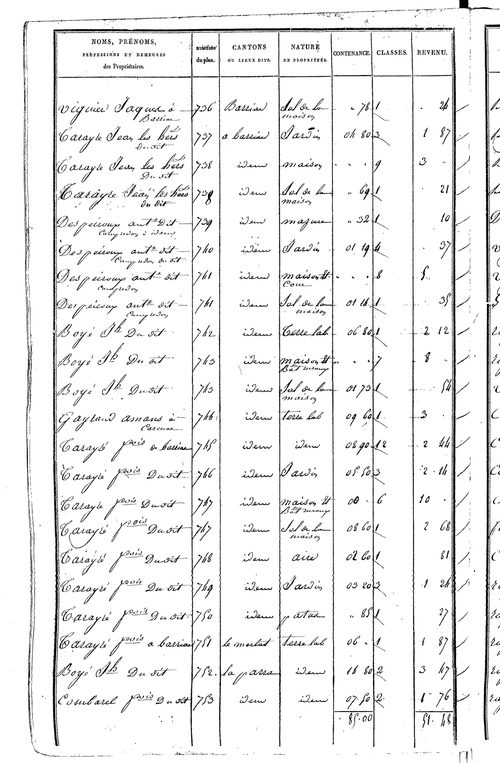 NOMS, PRÉNOMS, PROFESSIONS ET DEMEURES des Propriétaires. NUMÉROS du plan. CANTONS OU LIEUX DITS. NATURE DE PROPRIÉTÉS. CONTENANCE. CLASSES. REVENU.
Viguier Jaques à Barriau 736 Barriau Sol de la maison " 78 1 " 26
Tarayre Jean les hérs Du dit 737 a barriau Jardin 04 80 3 1 87
Tarayre Jean les hérs Du dit 738 idem maison " " 9 3 "
Tarayre Jean les hérs du dit 738 idem Sol de la maison " 69 1 " 21
Despeiroux antne dit 739 idem mazure " 32 1 " 10
Despeiroux antne dit 740 idem Jardin 01 19 4 " 37
Despeiroux antne dit 741 idem maison et Cour " " 8 5 "
Despeiroux antne dit 741 idem Sol de la maison 01 14 1 " 35
Boyé Jh Du dit 742 idem Terre lab 06 80 1 2 12
Boyé Jh Du dit 743 idem maison et Bât ruraux " " 7 8 "
Boyé Jh Du dit 743 idem Sol de la maison 01 73 1 " 54
Gayraud amans à 744 idem terre lab 09 60 1 3 "
Tarayre fois a barriau 745 idem idem 08 90 12 2 44
Tarayre fois Du dit 746 idem Jardin 05 50 3 2 14
Tarayre fois Du dit 747 idem maison et Bât ruraux 00 " 6 10 "
Tarayre fois Du dit 747 idem Sol de la maison 08 60 1 2 68
Tarayre fois Du dit 748 idem aire 02 60 1 81
Tarayre fois Du dit 749 idem Jardin 03 20 3 1 24
Tarayre fois Du dit 750 idem patus " 85 1 " 27
Tarayre fois a barriau 751 terre lab 06 " 1 1 87
Boyé Jh Du dit 752 la parra idem 14 80 2 3 47
Combarel fois Du dit 753 idem idem 07 50 2 1 76
85.00 51.48